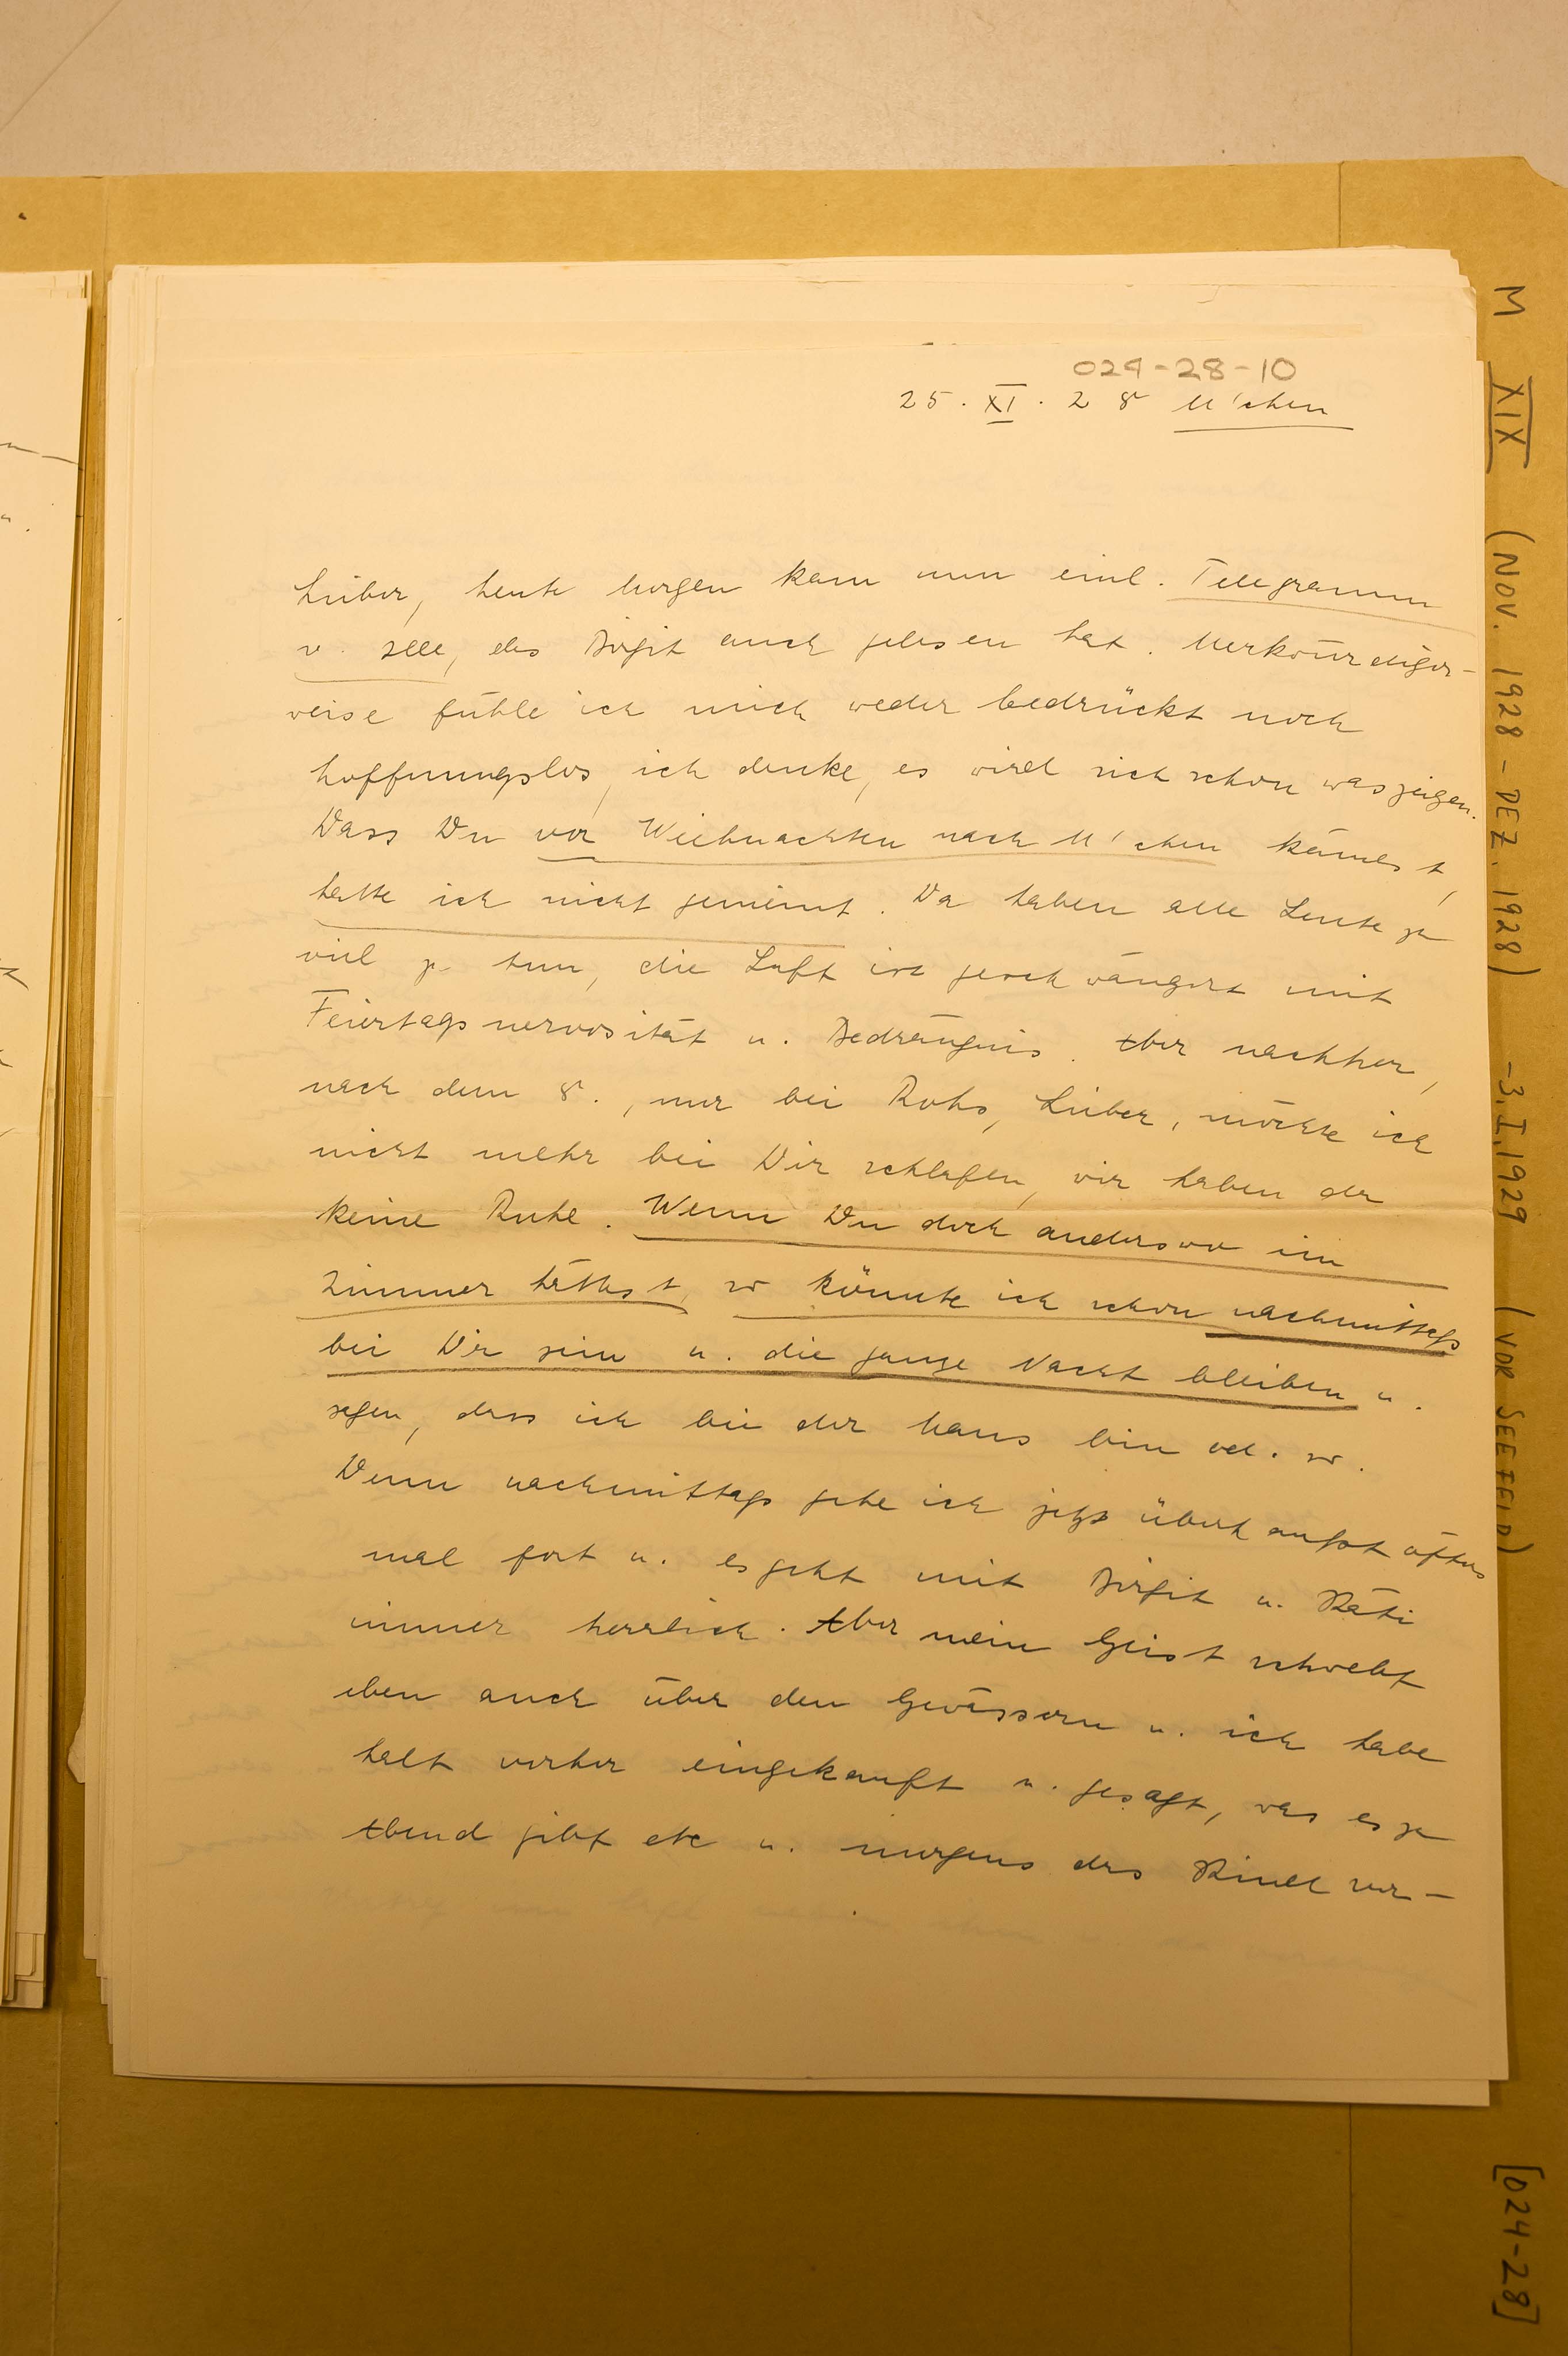 024-28-10
25. XI. 28 M'chen
Lieber, heute Morgen kam nun einl. Telegramm
v. Zell, das Birgit auch gelesen hat. Merkwürdiger-
weise fühle ich mich weder bedrückt noch
hoffnungslos, ich denke, es wird sich schon was zeigen.
Dass Du vor Weihnachten nach M'chen kämest,
hatte ich nicht gemeint. Da haben alle Leute zu
viel zu tun, die Luft ist geschwängert mit
Feiertagsnervosität u. Bedrängnis. Aber nachher,
nach dem 8., nur bei Rohs, Lieber, möchte ich
nicht mehr bei Dir schlafen, wir haben da
keine Ruhe. Wenn Du doch anderswo ein
Zimmer hättest, so könnte ich schon nachmittags
bei Dir sein u. die ganze Nacht bleiben u.
sagen, dass ich bei der Hans bin od. so.
Denn nachmittags gehe ich jetzt überhaupt öfters
mal fort u. es geht mit Birgit u. Käti
immer herrlich. Aber mein Geist schwebt
eben auch über den Gewässern u. ich habe
halt vorher eingekauft u. gesagt, was es zu
Abend gibt etc u. morgens das Kind ver-
M XIX (NOV. 1928 - DEZ. 1928) -3.I.1929 (VOR SEEFELD) [024-28]